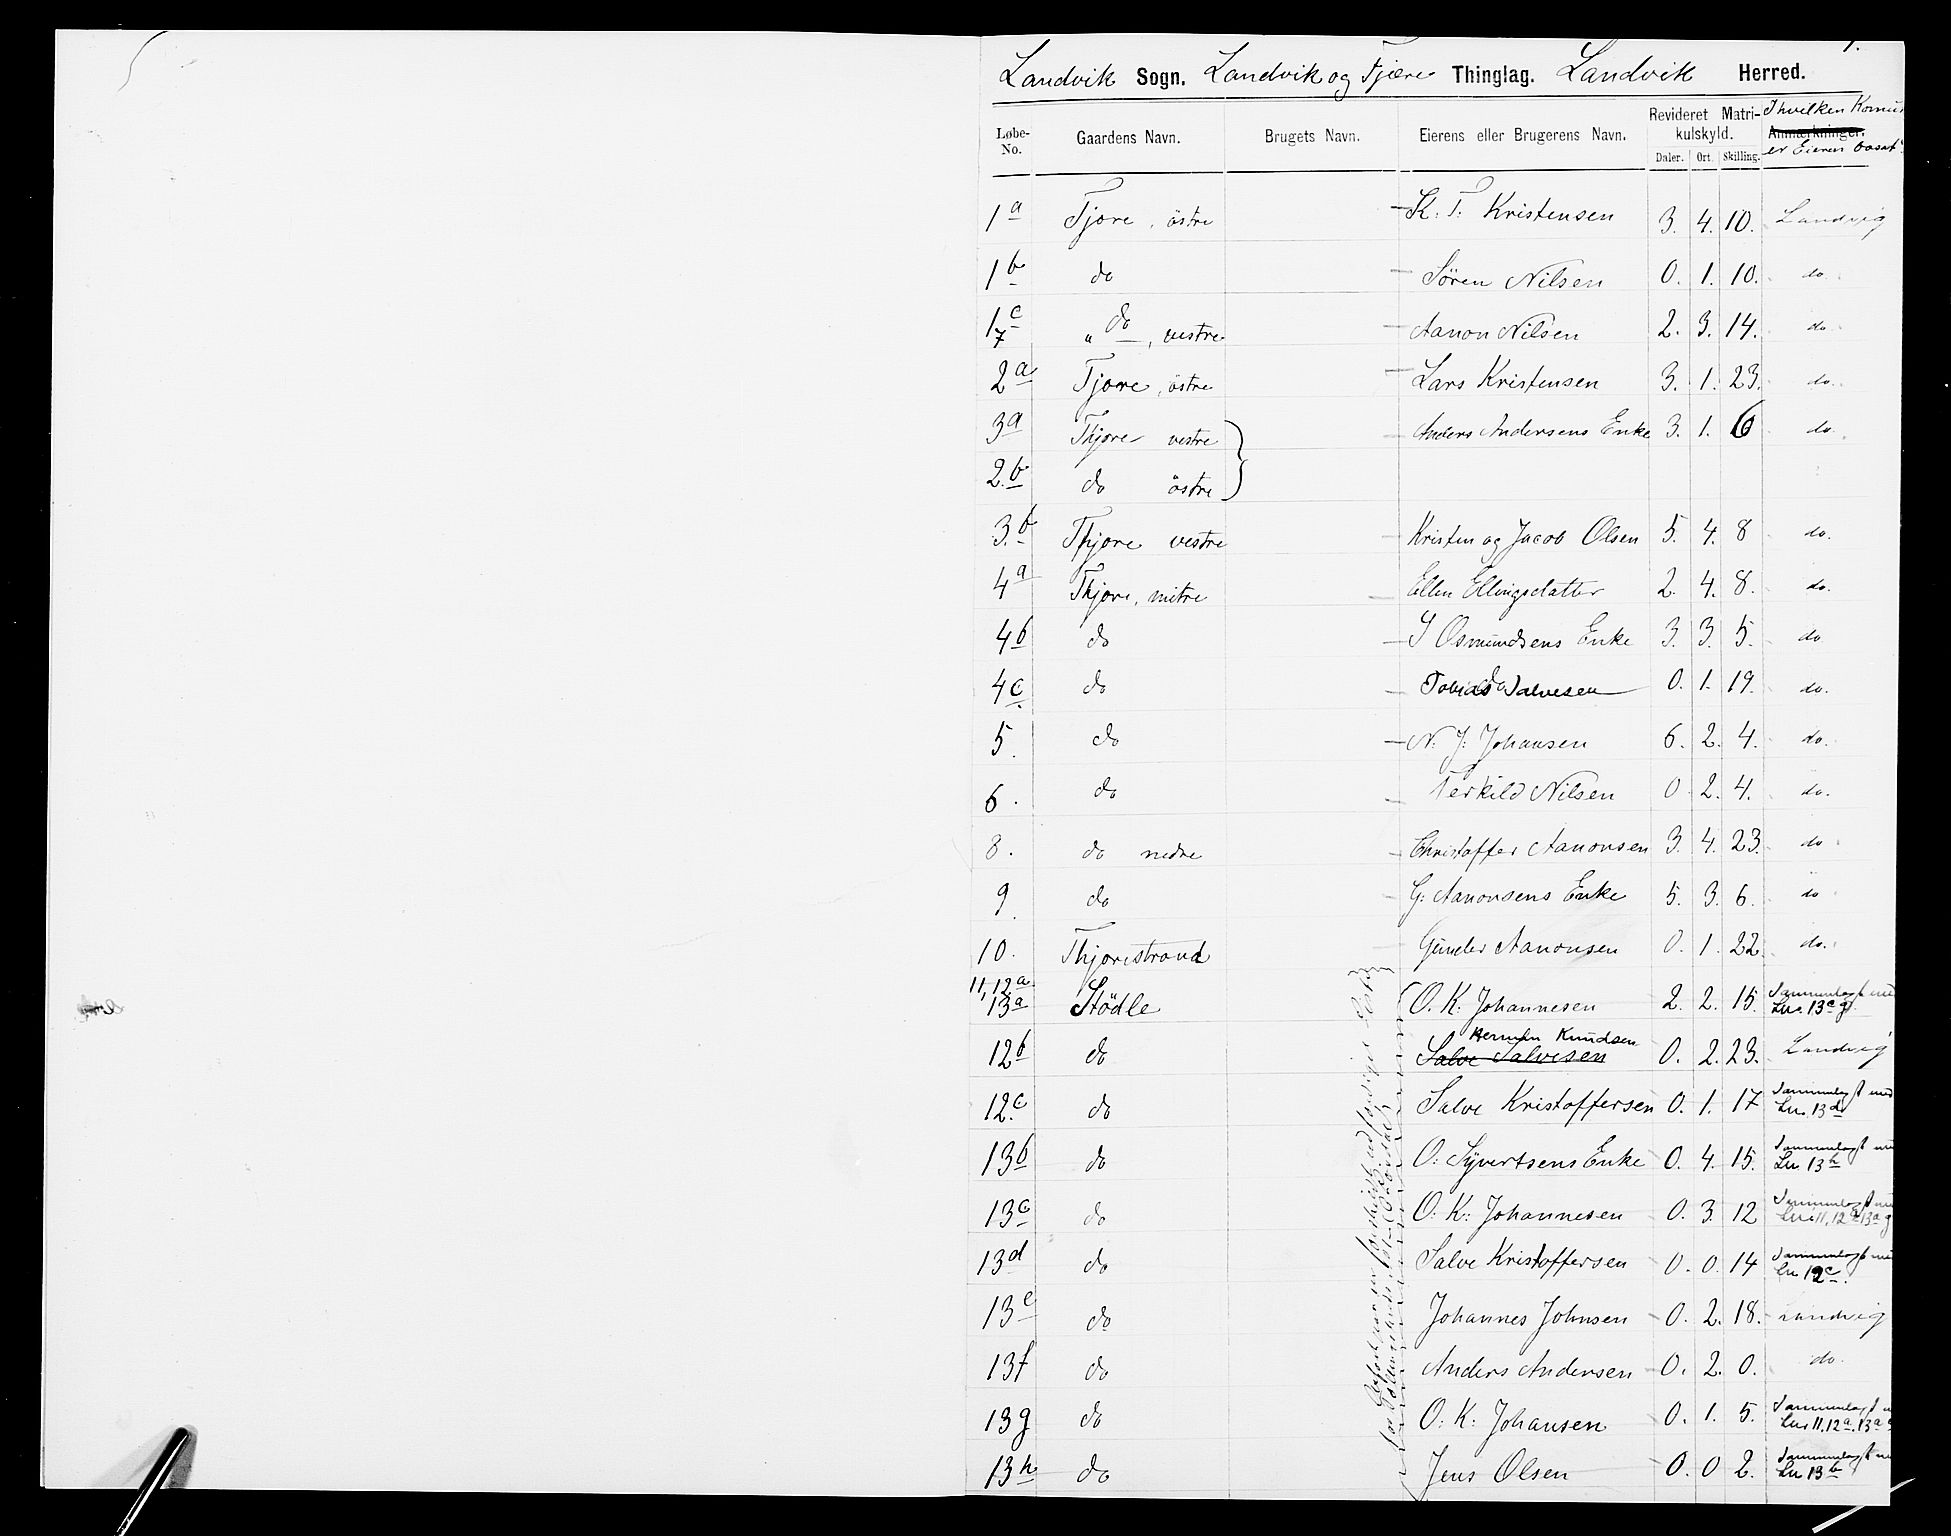 1.
Landvik Sogn. Landvik og Fjære Thinglag. Landvik Herred.
Løbe-No. Gaardens Navn. Brugets Navn. Eierens eller Brugerens Navn. Revideret Matrikulskyld. Daler. Ort. Skilling. Anmærkninger. I hvilken Komun er Eieren bosat
1a Tjore, östre K. T. Kristensen 3. 4. 10. Landvig
1b do Sören Nilsen 0. 1. 10. do.
1c 7 " do, vestre Aanon Nilsen 2. 3. 14. do.
2a Tjore, östre Lars Kristensen 3. 1. 23. do.
3a Thjore vestre Anders Andersens Enke 3. 1. 6 do.
2b do östre
3b Thjore vestre Kristen og Jacob Olsen 5. 4. 8 do.
4a Thjore, mitre Ellen Ellingsdatter 2. 4. 8. do.
4b do Osmundsens Enke 3. 3. 5. do
4c do Tobias Salvesen 0. 1. 19. do.
5. do N. J. Johansen 6. 2. 4. do.
6. do Terkild Nilsen 0 2. 4. do.
8. do nedre Christoffer Aanonsen 3. 4. 23. do
9. do G. Aanonsens Enke 5. 3. 6. do
10. Thjorestrand Gunder Aanonsen 0. 1. 22. do.
11, 12a 13a Stödle O. K. Johannesen 2. 2. 15. Sammenlagt med Lno. 13c g
12b do Salve Salvesen Herman Knudsen 0. 2. 23. Landvig
12c do Salve Kristoffersen 0. 1. 17 Sammenlagt med Lno. 13d
13b do O. Syvertsens Enke 0. 4. 15. Sammenlagt med Lno. 13h
13c do O. K. Johannesen 0. 3. 12 Sammenlagt med Lno. 11, 12a 13a g
13d do Salve Kristoffersen 0. 0. 14 Sammenlagt med Lno 12c.
13e do Johannes Johnsen 0. 2. 18. Landvig
13f do Anders Andersen 0. 2. 0. do.
13g do O. K. Johansen 0. 1. 5. Sammenlagt Lno 11, 12a, 13a
13h do Jens Olsen 0. 0 2. Sammenlagt Lno 13b